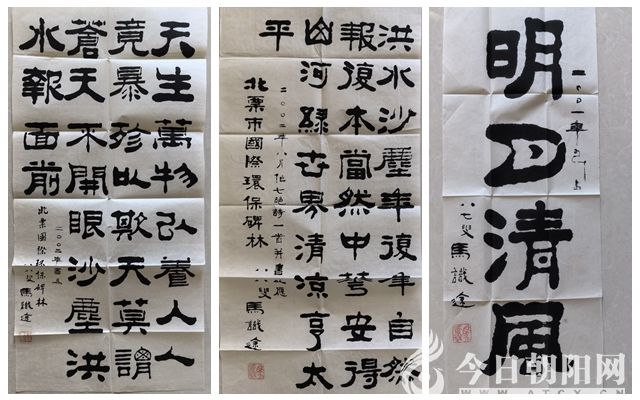 天生萬物弘養人人
竟暴殄以欺天莫謂
蒼天不開眼沙塵洪
水報面前
北票國際環保碑林
二〇〇二年
八八叟 馬識途
洪水沙塵年復年自然
報復本當然中華安得
山河綠世界清凉亨太
平
二〇〇二年八月作七絕詩一首并書
北票市國際環保碑林 八八叟 馬識途
二〇〇一年
明月清風
八七叟 馬識途
今日朝阳网